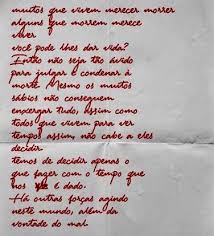 muitos que vivem merecem morrer
alguns que morrem merece
viver
você pode lhes dar vida?
Então não seja tão ávido
para julgar e condenar à
morte. Mesmo os muitos
sábios não conseguem
enxergar tudo, assim como
todos que vivem para ver
tempos assim, não cabe a eles
decidir
temos de decidir apenas o
que fazer com o tempo que
nos é dado.
Há outras forças agindo
neste mundo, além da
vontade do mal